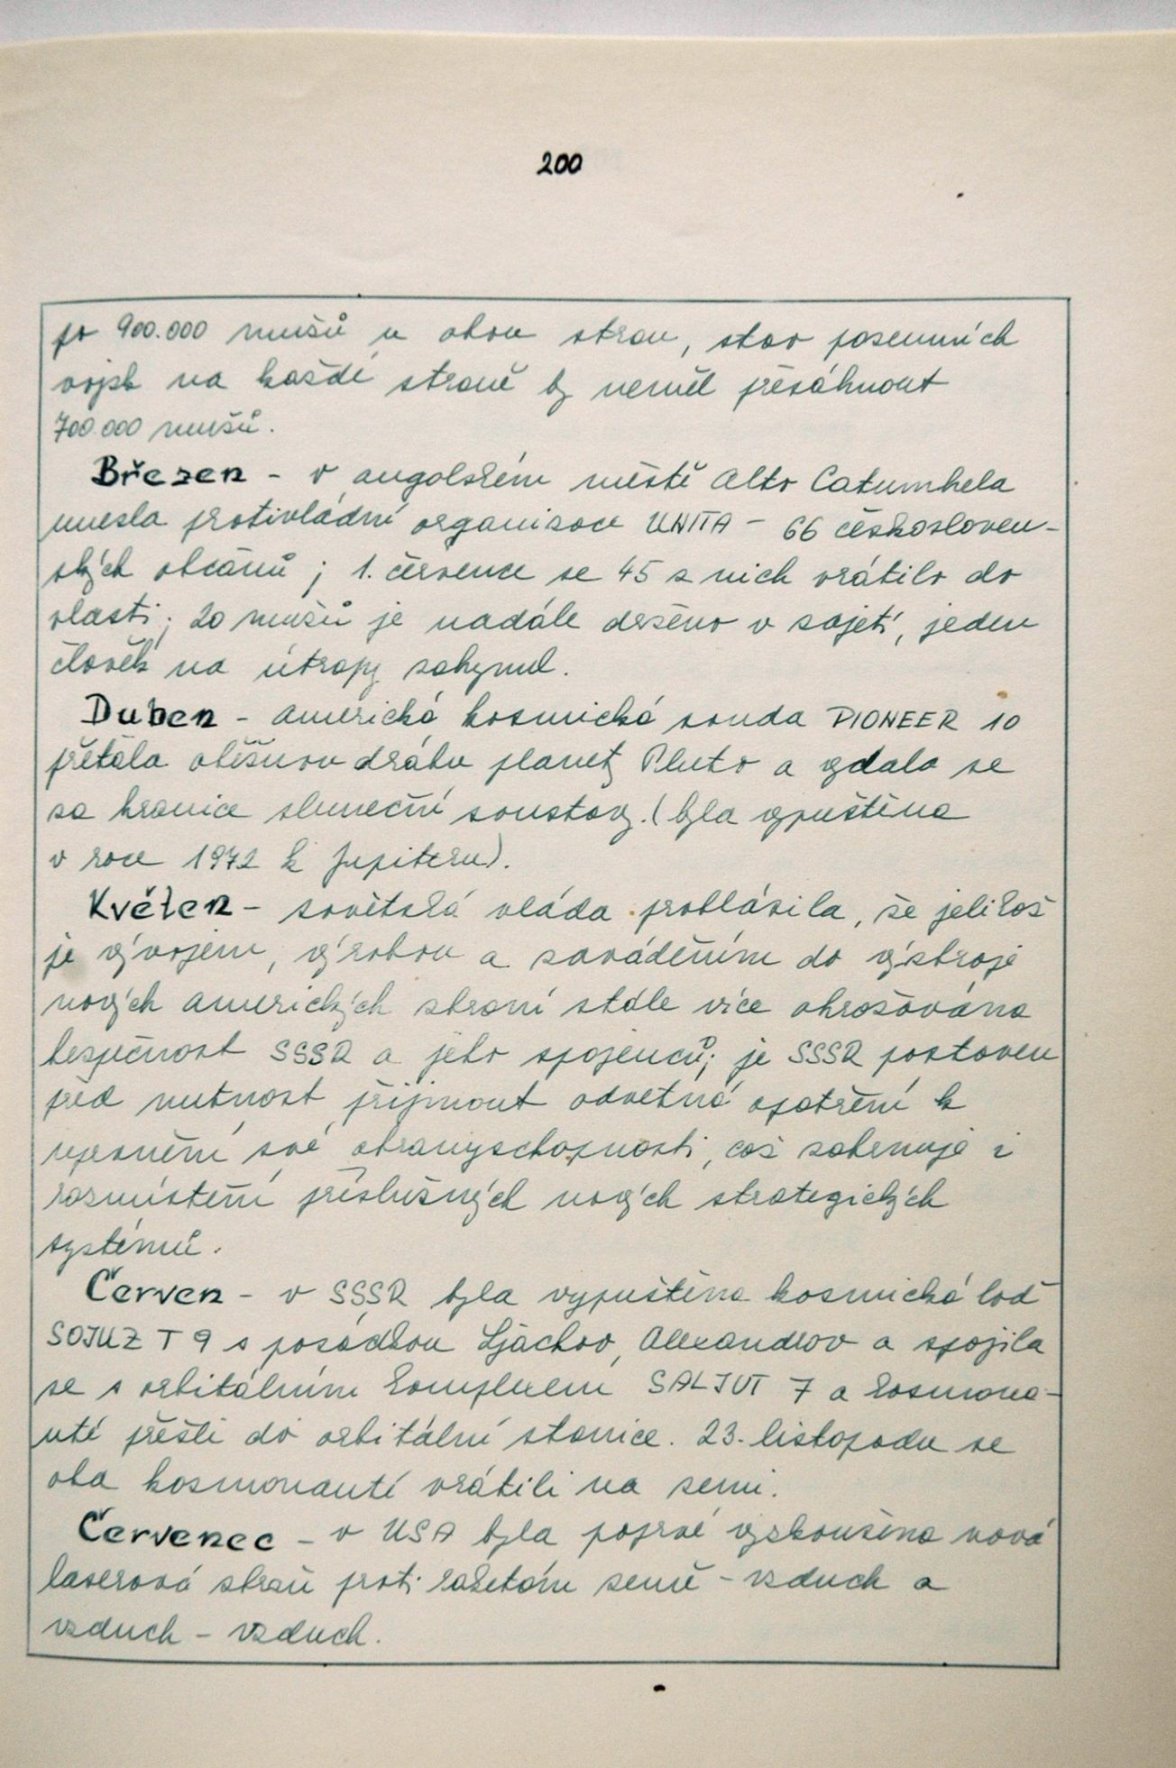 200
po 900.000 mužů u obou stran, stav pozemních
vojsk na každé straně by neměl přesáhnout
700.000 mužů.
Březen - v angolském městě Alto Catumbela
unesla protivládní organizace UNITA - 66 českosloven-
ských občanů; 1. července se 45 z nich vrátilo do
vlasti; 20 mužů je nadále drženo v zajetí, jeden
člověk na útrapy zahynul.
Duben - americká kosmická sonda PIONEER 10
přetála oběžnou dráhu planety Pluto a vydala se
za hranice sluneční soustavy. (byla vypuštěna
v roce 1972 k Jupiteru).
Květen - sovětská vláda prohlásila, že jelikož
je vývojem, výrobou a zaváděním do výstroje
nových amerických zbraní stále více ohrožována
bezpečnost SSSR a jeho spojenců; je SSSR postaven
před nutnost přijmout odvetná opatření k
upevnění své obranyschopnosti, což zahrnuje i
rozmístění příslušných nových strategických
systémů.
Červen - v SSSR byla vypuštěna kosmická loď
SOJUZ T 9 s posádkou Ljachov, Alexandrov a spojila
se s orbitálním komplexem SALJUT 7 a kosmona-
uté přešli do orbitální stanice. 23. listopadu se
oba kosmonauté vrátili na zemi.
Červenec - v USA byla poprvé vyzkoušena nová
laserová zbraň proti raketám země - vzduch a
vzduch - vzduch.